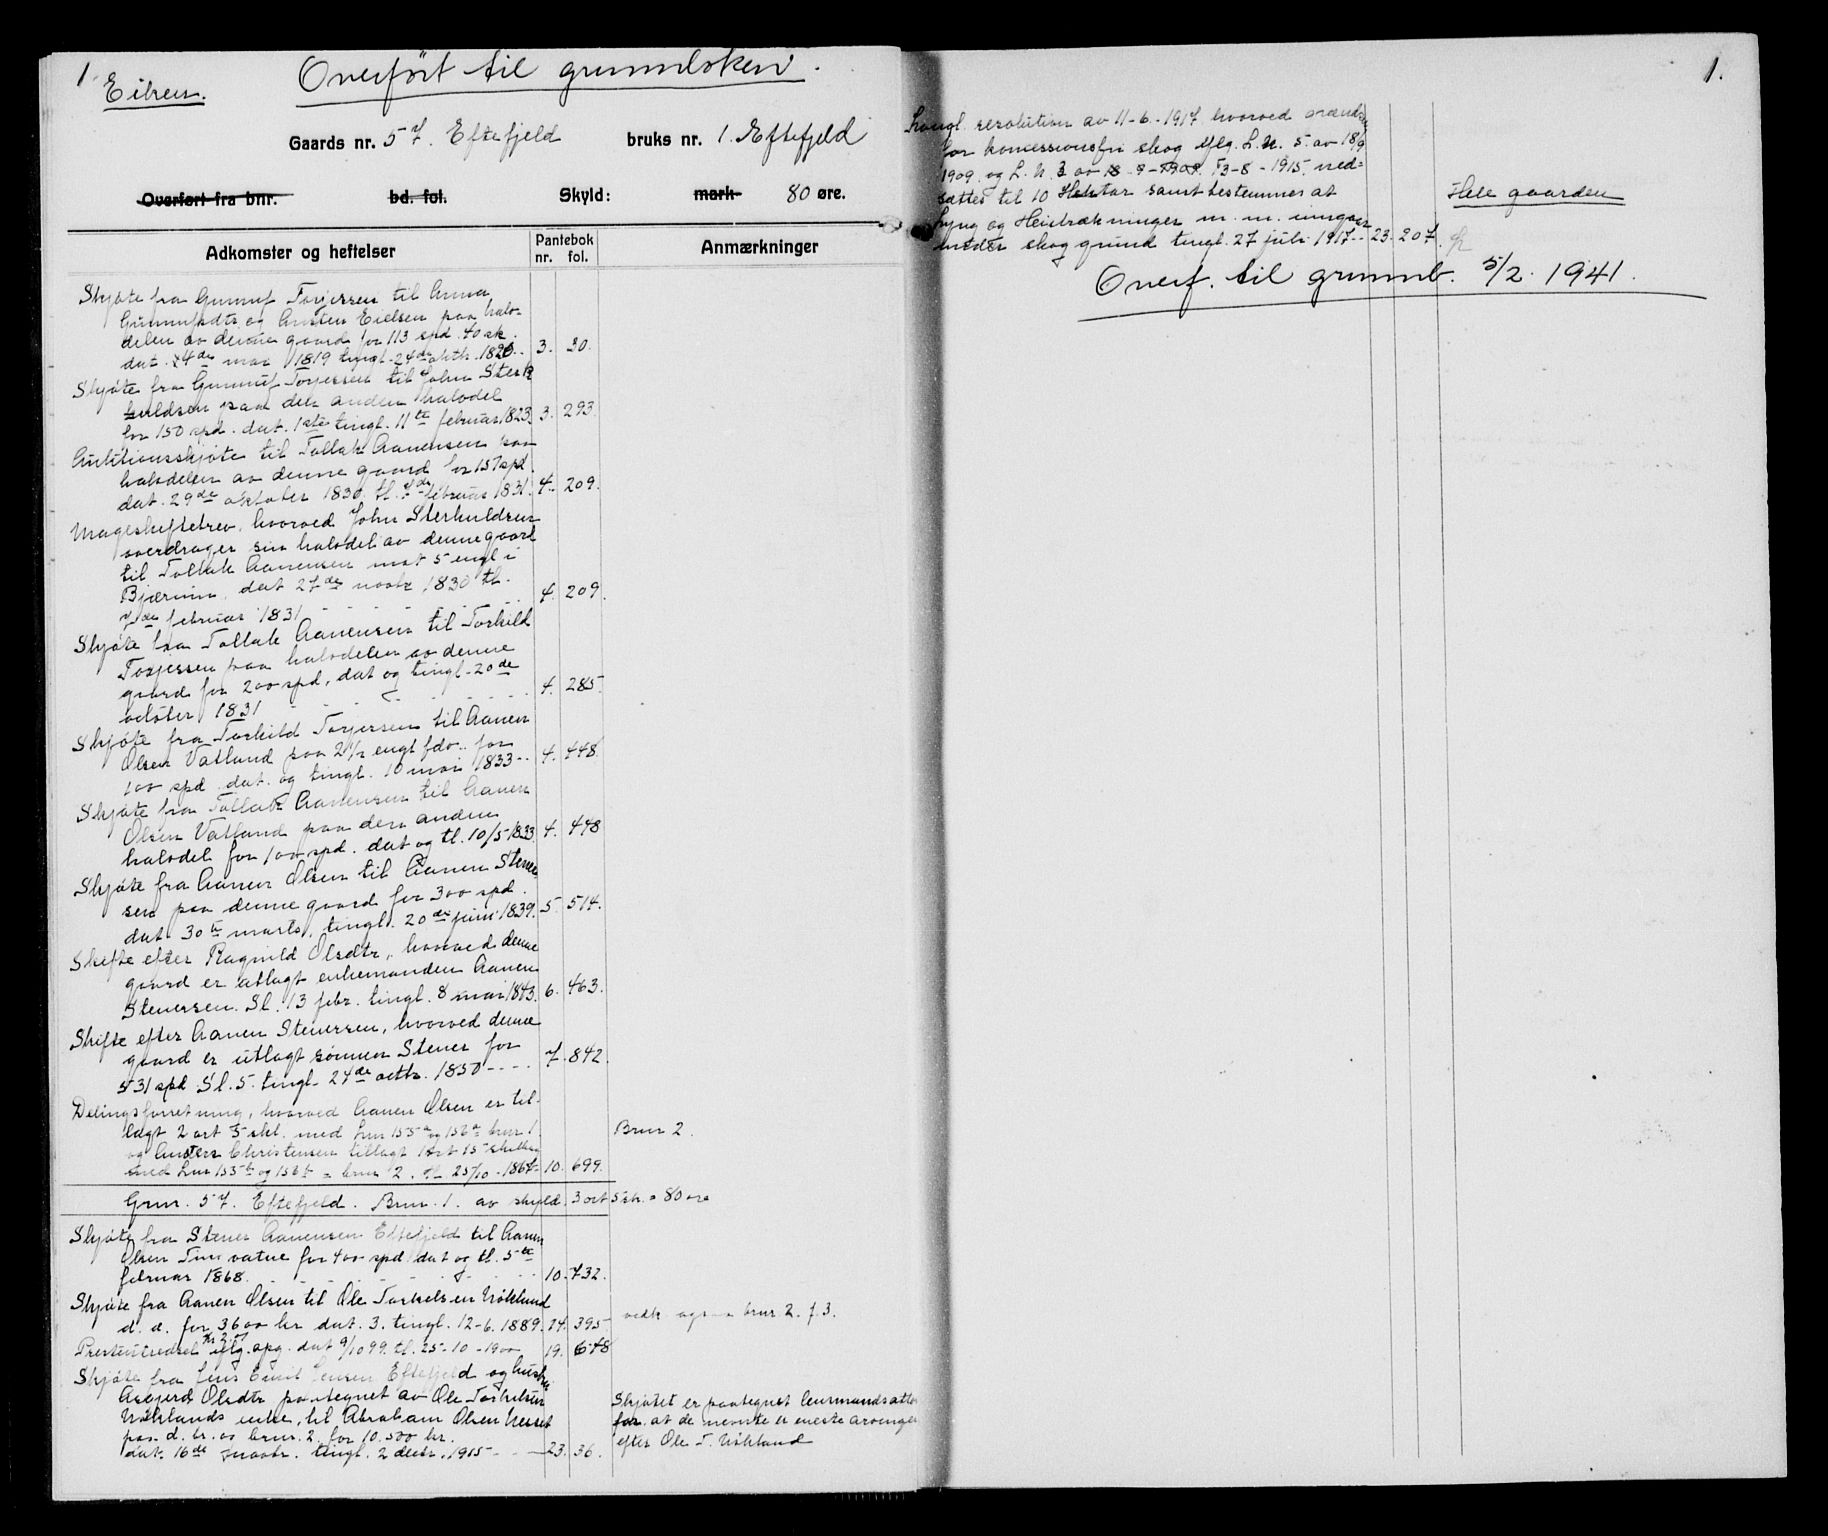 1
Eiken.
Overført til grunnboken.
Gaards nr. 57. Eftefjeld bruks nr. 1. Eftefjeld
Overført fra bnr. bd. fol. Skyld: mark 80 øre.
Adkomster og heftelser
Pantebok
nr. fol.
Anmærkninger
Skjøte fra Gunnuf Torjersen til Anna
Gunnufsdtr og Austen Eielsen paa halv-
delen av denne gaard for 113 spd. 40 sk.
dat. 24de mai 1819 tingl. 24de oktb. 1820 .. 3. 30.
Skjøte fra Gunnuf Torjersen til John Sterk-
huldsen paa den anden halvdel
for 150 spd. dat. 1ste tingl. 11te februar 1823. 3. 293.
Auktionsskjøte til Tollak Aanensen paa
halvdelen av denne gaard for 157 spd.
dat. 29de oktober 1830. tl. 7de februar 1831. 4. 209.
Mageskiftebrev, hvorved John Sterkuldsen
overdrager sin halvdel av denne gaard
til Tollak Aanensen mot 5 engl i
Bjærum, dat 27de novbr. 1830 tl.
7de februar 1831 . . . . 4. 209.
Skjøte fra Tollak Aanensen til Torkild
Torjersen paa halvdelen av denne
gaard for 200 spd, dat og tingl. 20de
oktober 1831 . . . . 4. 285.
Skjøte fra Torkild Torjersen til Aanen
Olsen Vatland paa 2 1/2 engl fdv. for
100 spd dat. og tingl. 10 mai 1833 -- 4. 448.
Skjøte fra Tollak Aanensen til Aanen
Olsen Vatland paa den anden
halvdel for 100 spd. dat og tl. 10/5 1833. 4. 448
Skjøte fra Aanen Olsen til Aanen Stener-
sen paa denne gaard for 300 spd.
dat 30te marts, tingl. 20de juni 1839. 5. 514.
Skifte efter Ragnild Olsdtr, hvorved denne
gaard er utlagt enkemanden Aanen
Stenersen. Sl. 13 febr. tingl. 8 mai 1843. 6. 463.
Skifte efter Aanen Stenersen, hvorved denne
gaard er utlagt sønnen Stener for
531 spd Sl. 5. tingl. 24de octb. 1850 ---- 7. 842.
Delingsforretning, hvorved Aanen Olsen er til-
lagt 2 ort 5 skl. med Lnr 155a og 156a brnr 1.
og Austen Christensen tillagt 1 ort 15 skilling
med Lnr 155b og 156b = brnr 2. tl 25/10 - 1867 - 10. 699.
Brnr 2.
Gnr. 57. Eftefjeld. Brnr. 1. av skyld: 3 ort 5 sk. = 80 øre
Skjøte fra Stener Aanensen Eftefjeld til Aanen
Olsen Tinvatne for 400 spd dat og tl. 5te
februar 1868. . . . . 10. 732.
Skjøte fra Aanen Olsen til Ole Torkelsen Ukland
d. d. for 3600 kr dat. 3. tingl. 12-6. 1889. 24. 395
vedk ogsaa brnr. 2. f. 3.
Presteutredsel iflg. opg. dat 9/10 99. tl. 25-10-1900 19. 648
Skjøte fra Jens Emil Jensen Eftefjeld og hustru
Asgjerd Olsdtr paategnet av Ole Torkelsen
Uklands enke, til Abraham Olsen Nesset
paa d. br. og brnr. 2. for 10.500 kr.
dat. 16de novbr. tingl. 2 decbr. 1915 - - - 23. 36.
Skjøtet er paategnet lensmandsattest
for at de nævnte er eneste arvinger
efter Ole T. Ukland
1.
Kongl. resolution av 11-6-1917 hvorved grændsen
for koncessionsfri skog iflg. L. N. 5. av 18/9
1909. og L. N. 3 av 8 - 9 - 1909. 13-8-1915. ned-
sættes til 10 Hektar samt bestemmes at
Lyng og Heistrækninger m. m. inngaar
under skog grund tingl. 27 juli 1917 -- 23. 207.
Hele gaarden
Overf. til grunnb. 5/2. 1941.